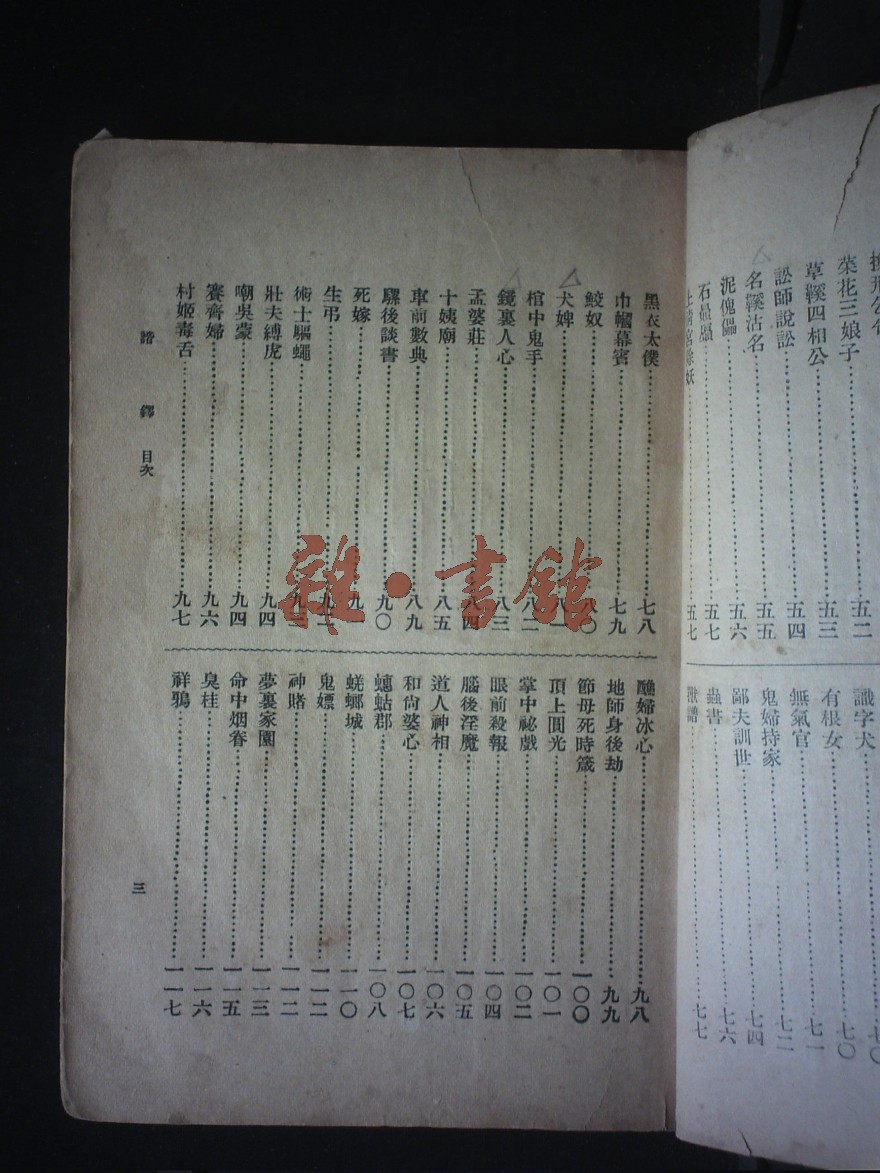 菜花三娘子……五二
草鞵四相公……五三
訟師說訟……五四
名鞵沽名……五五
泥傀儡……五六
石贔屭……五七
五七
識字犬……七〇
有根女……七〇
無氣官……七一
鬼婦持家……七二
鄙夫訓世……七四
蟲書……七六
獸譜……七七
黑衣太僕……七八
巾幗幕賓……七九
鮫奴……八〇
犬婢……八
棺中鬼手……八二
鏡裏人心……八三
孟婆莊……八四
十姨廟……八五
車前數典……八九
騾後談書……九〇
死嫁……九
生弔……九二
術士驅蠅……九三
壯夫縛虎……九四
嘲吳蒙……九四
賽齊婦……九六
村姬毒舌……九七
醜婦冰心……九八
地師身後劫……九九
節母死時箴……一〇〇
頂上圓光……一〇一
掌中祕戲……一〇二
眼前殺報……一〇四
腦後淫魔……一〇五
道人神相……一〇六
和尙婆心……一〇七
蟪蛄郡……一〇八
蜣螂城……一一〇
鬼嫖……一一二
神賭……一一二
夢裏家園……一一三
命中烟眷……一一五
臭桂……一一六
祥鴉……一一七
諧鐸 目次
三
雜·書館